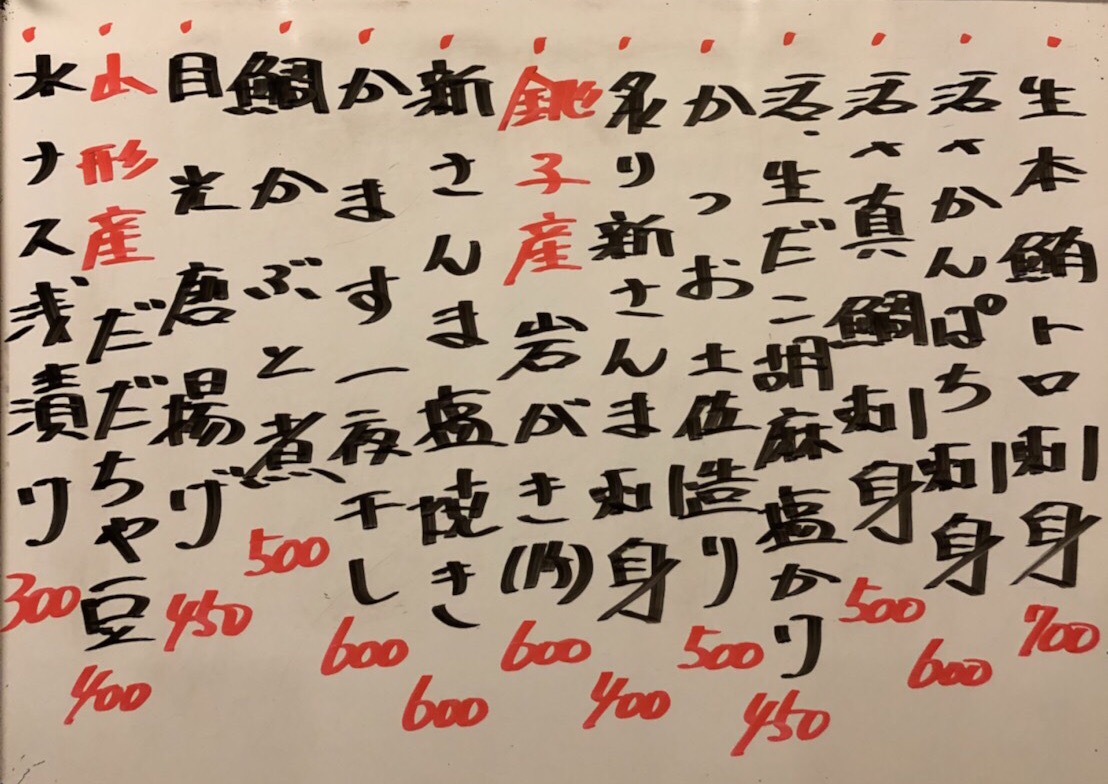 生本鮪トロ刺身 700
活〆かんぱち刺身 600
活〆真鯛刺身 500
活〆生だこ胡麻塩かり 450
かつお土佐造り 500
炙り新さんま刺身 400
銚子産岩がき(1ケ) 600
新さんま塩焼き 600
かます一夜干し 600
鯛かぶと煮 500
目光唐揚げ 450
山形産だだちゃ豆 400
水ナス浅漬り 300